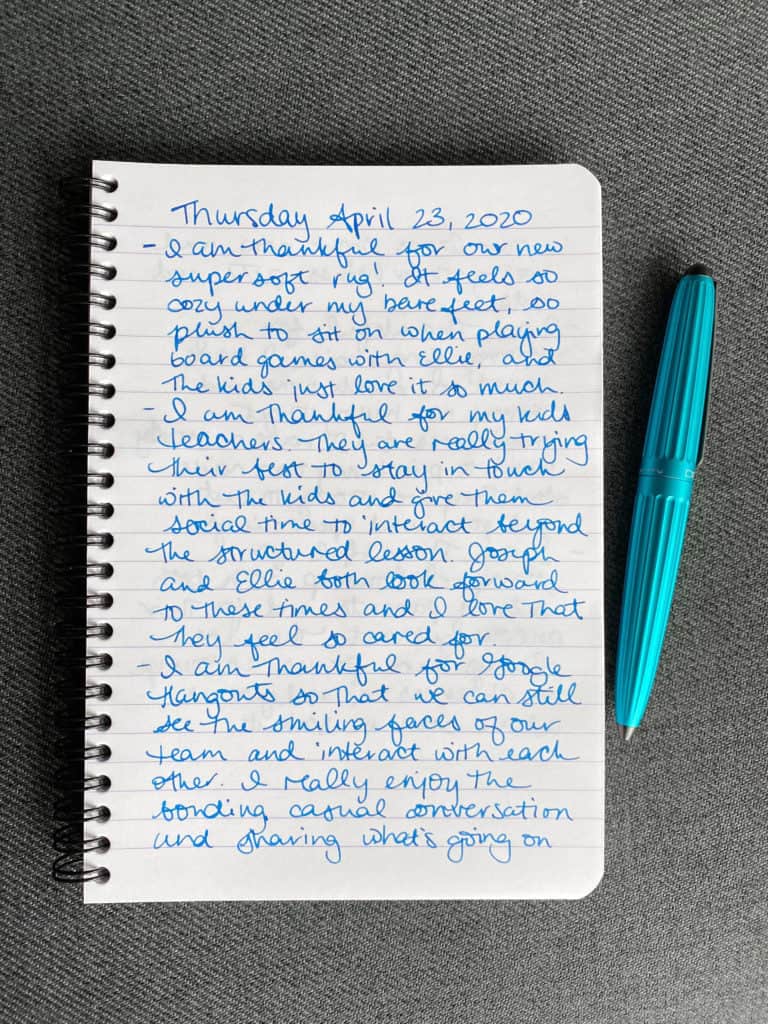 Thursday April 23, 2020
- I am thankful for our new
super soft rug! It feels so
cozy under my bare feet, so
plush to sit on when playing
board games with Ellie, and
the kids just love it so much.
- I am thankful for my kids
teachers. They are really trying
their best to stay in touch
with the kids and give them
social time to interact beyond
the structured lesson. Joseph
and Ellie both look forward
to these times and I love that
they feel so cared for.
- I am thankful for Google
Hangouts so that we can still
see the smiling faces of our
team and interact with each
other. I really enjoy the
bonding, casual conversation
and sharing what's going on